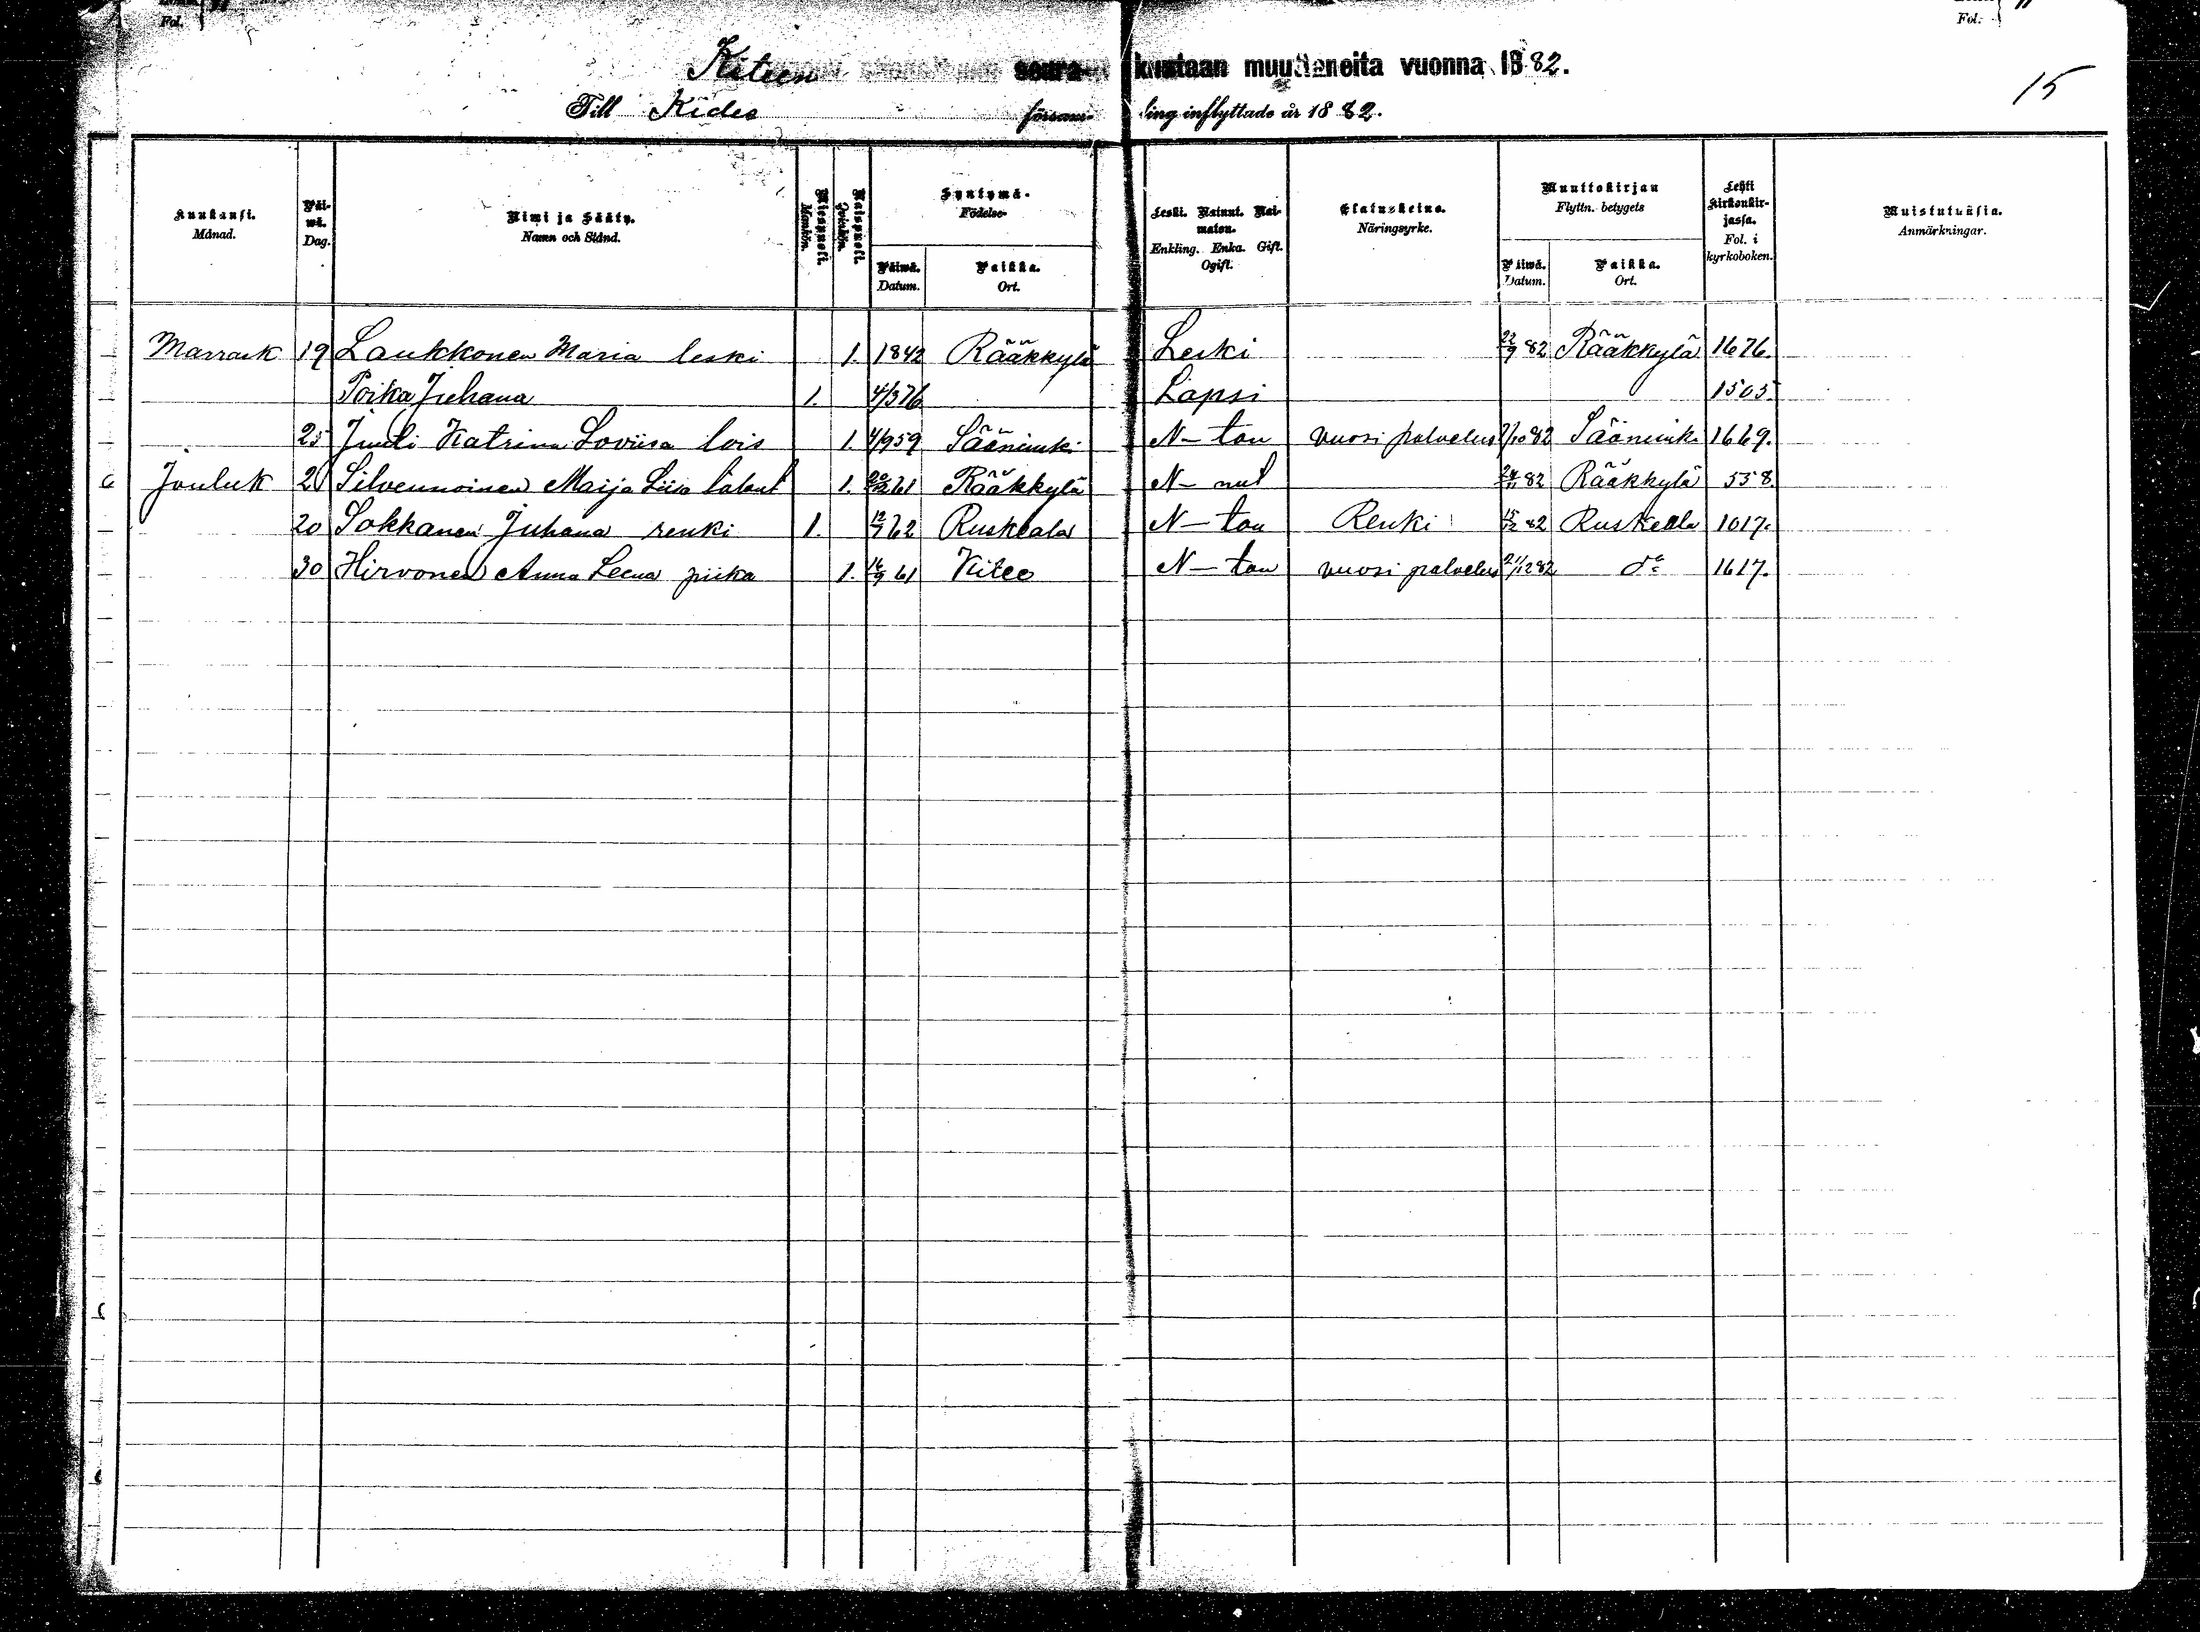 Fol.
Fol.
Kiteen seurakuntaan muuttaneita vuonna 1882.
Till Kides församling inflyttade år 1882.
15
Kuukausi. Månad.
Päiwä. Dag.
Nimi ja Sääty. Namn och Stånd.
Miespuoli. Mankön.
Naispuoli. Qvinkön.
Syntymä- Födelse-
Päiwä. Datum.
Paikka. Ort.
Leski. Nainut. Naimaton. Enkling. Enka. Gift. Ogift.
Elatuskeino. Näringsyrke.
Muuttokirjan Flyttn. betygets
Päiwä. Datum.
Paikka. Ort.
Lehti Kirkonkirjassa. Fol. i kyrkoboken.
Muistutuksia. Anmärkningar.
Marrask 19 Laukkonen Maria leski 1. 1842 Rääkkylä Leski 22/9 82 Rääkkylä 1676.
Poika Juhana 1. 4/3 76 Lapsi 1505.
25 Katrina Loviisa lois 1. 4/9 59 Sääminki N-ton vuosi palvelus /10 82 Sääminki 1669.
Jouluk 2 Silvennoinen Maija Liisa 1. 61 Rääkkylä N-nut /11 82 Rääkkylä 558.
20 Sokkanen Juhana renki 1. 12/7 62 Ruskeala N-ton Renki 15/12 82 Ruskeala 1017.
30 Hirvonen Anna Leena piika 1. 16/9 61 Kitee N-ton vuosi palvelus 21/12 82 d:o 1617.